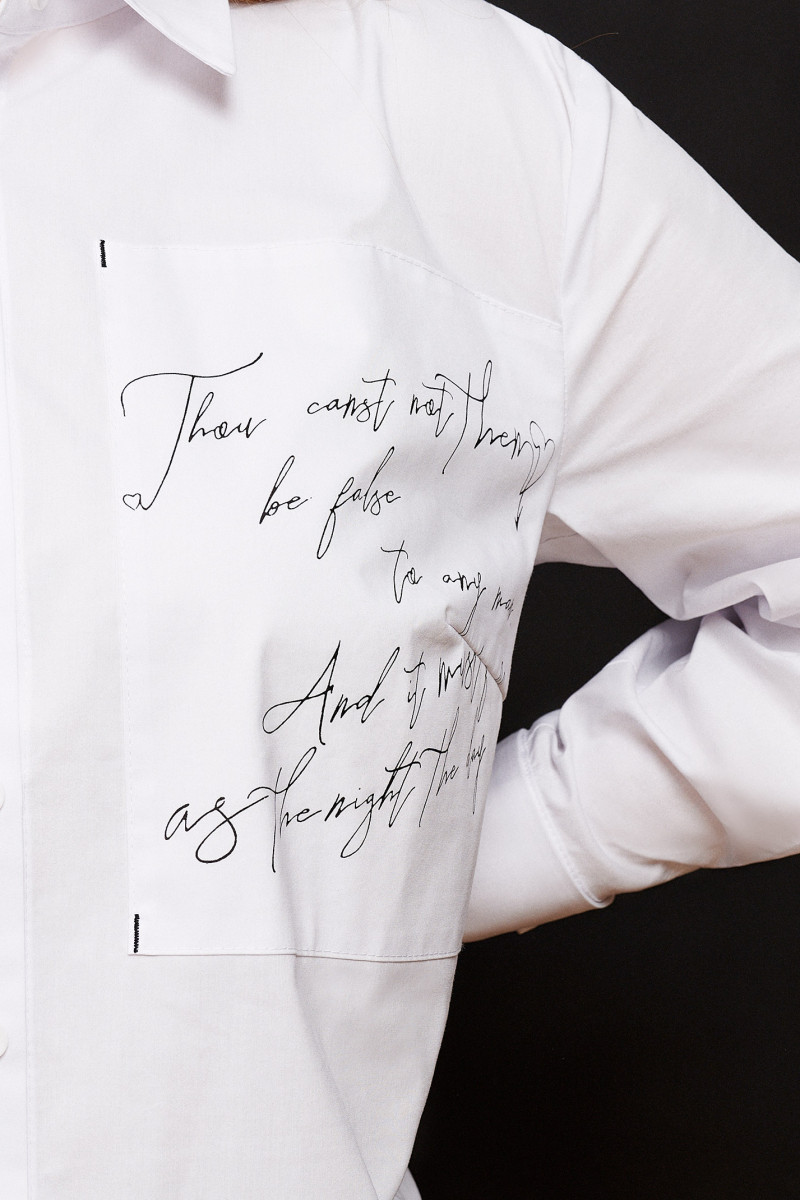 Thou canst not Then
be false
to any man
And it must
as the night the day